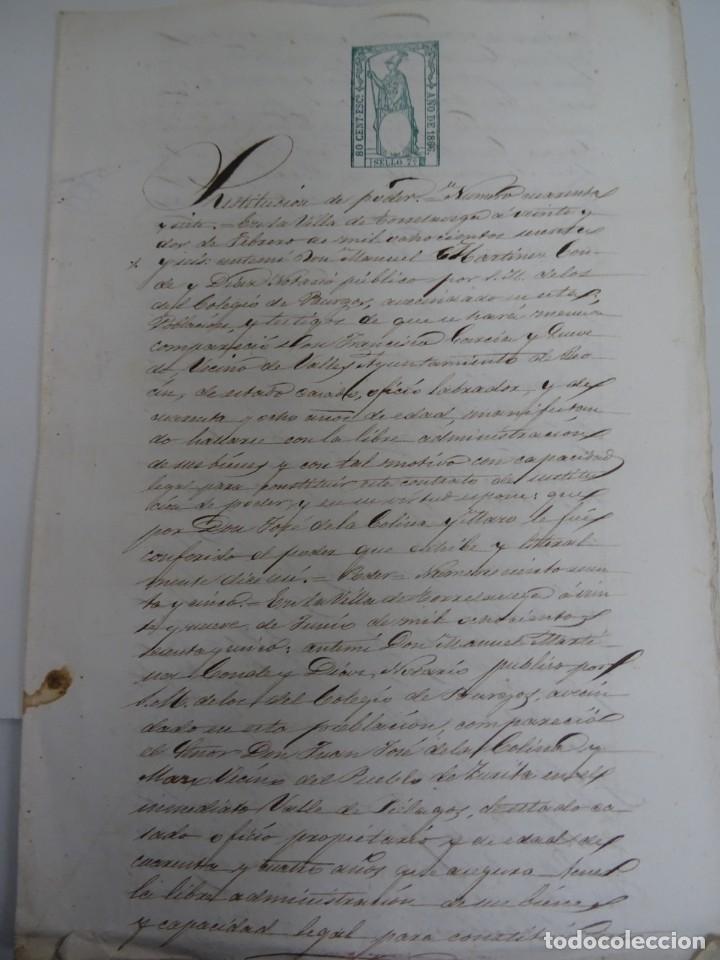 80 CENT. ESC.
AÑO DE 1866.
SELLO 7º
Sustitucion de poder.= Numero cuarenta
y siete.= En la Villa de Torrelavega a veinte y
dos de Febrero de mil ochocientos sesenta
y seis: antemi Don Manuel Martinez Con-
de y Diaz Notario público por S.M. de los
del Colegio de Burgos, avecindado en esta
Poblacion, y testigos de que se hará mencion
compareció Don Francisco Garcia y
Vecino de Valles Ayuntamiento de Reo-
cin, de estado casado, oficio labrador, y de
cuarenta y ocho años de edad, manifestan-
do hallarse con la libre administracion
de sus bienes y con tal motivo con capacidad
legal para constituir este contrato de sustitu-
cion de poder, y en su virtud espone: que
por Don José de la Colina y Mazo le fué
conferido el poder que exhibe y literal-
mente dice así.= Poder= Numero ciento
ta y cinco.= En la Villa de Torrelavega á vein-
te y nueve de Junio de mil ochocientos
sesenta y cinco: antemi Don Manuel Marti-
nez Conde y Diaz, Notario publico por
S.M. de los del Colegio de Burgos, avecin-
dado en esta poblacion, compareció
el Señor Don Juan José de la Colina y
Mazo Vecino del Pueblo de Zurita en el
inmediato Valle de Piélagos, de estado ca-
sado oficio propietario y de edad de
cuarenta y cuatro años que asegura tener
la libre administracion de sus bienes
y capacidad legal para constituir
todocoleccion.net